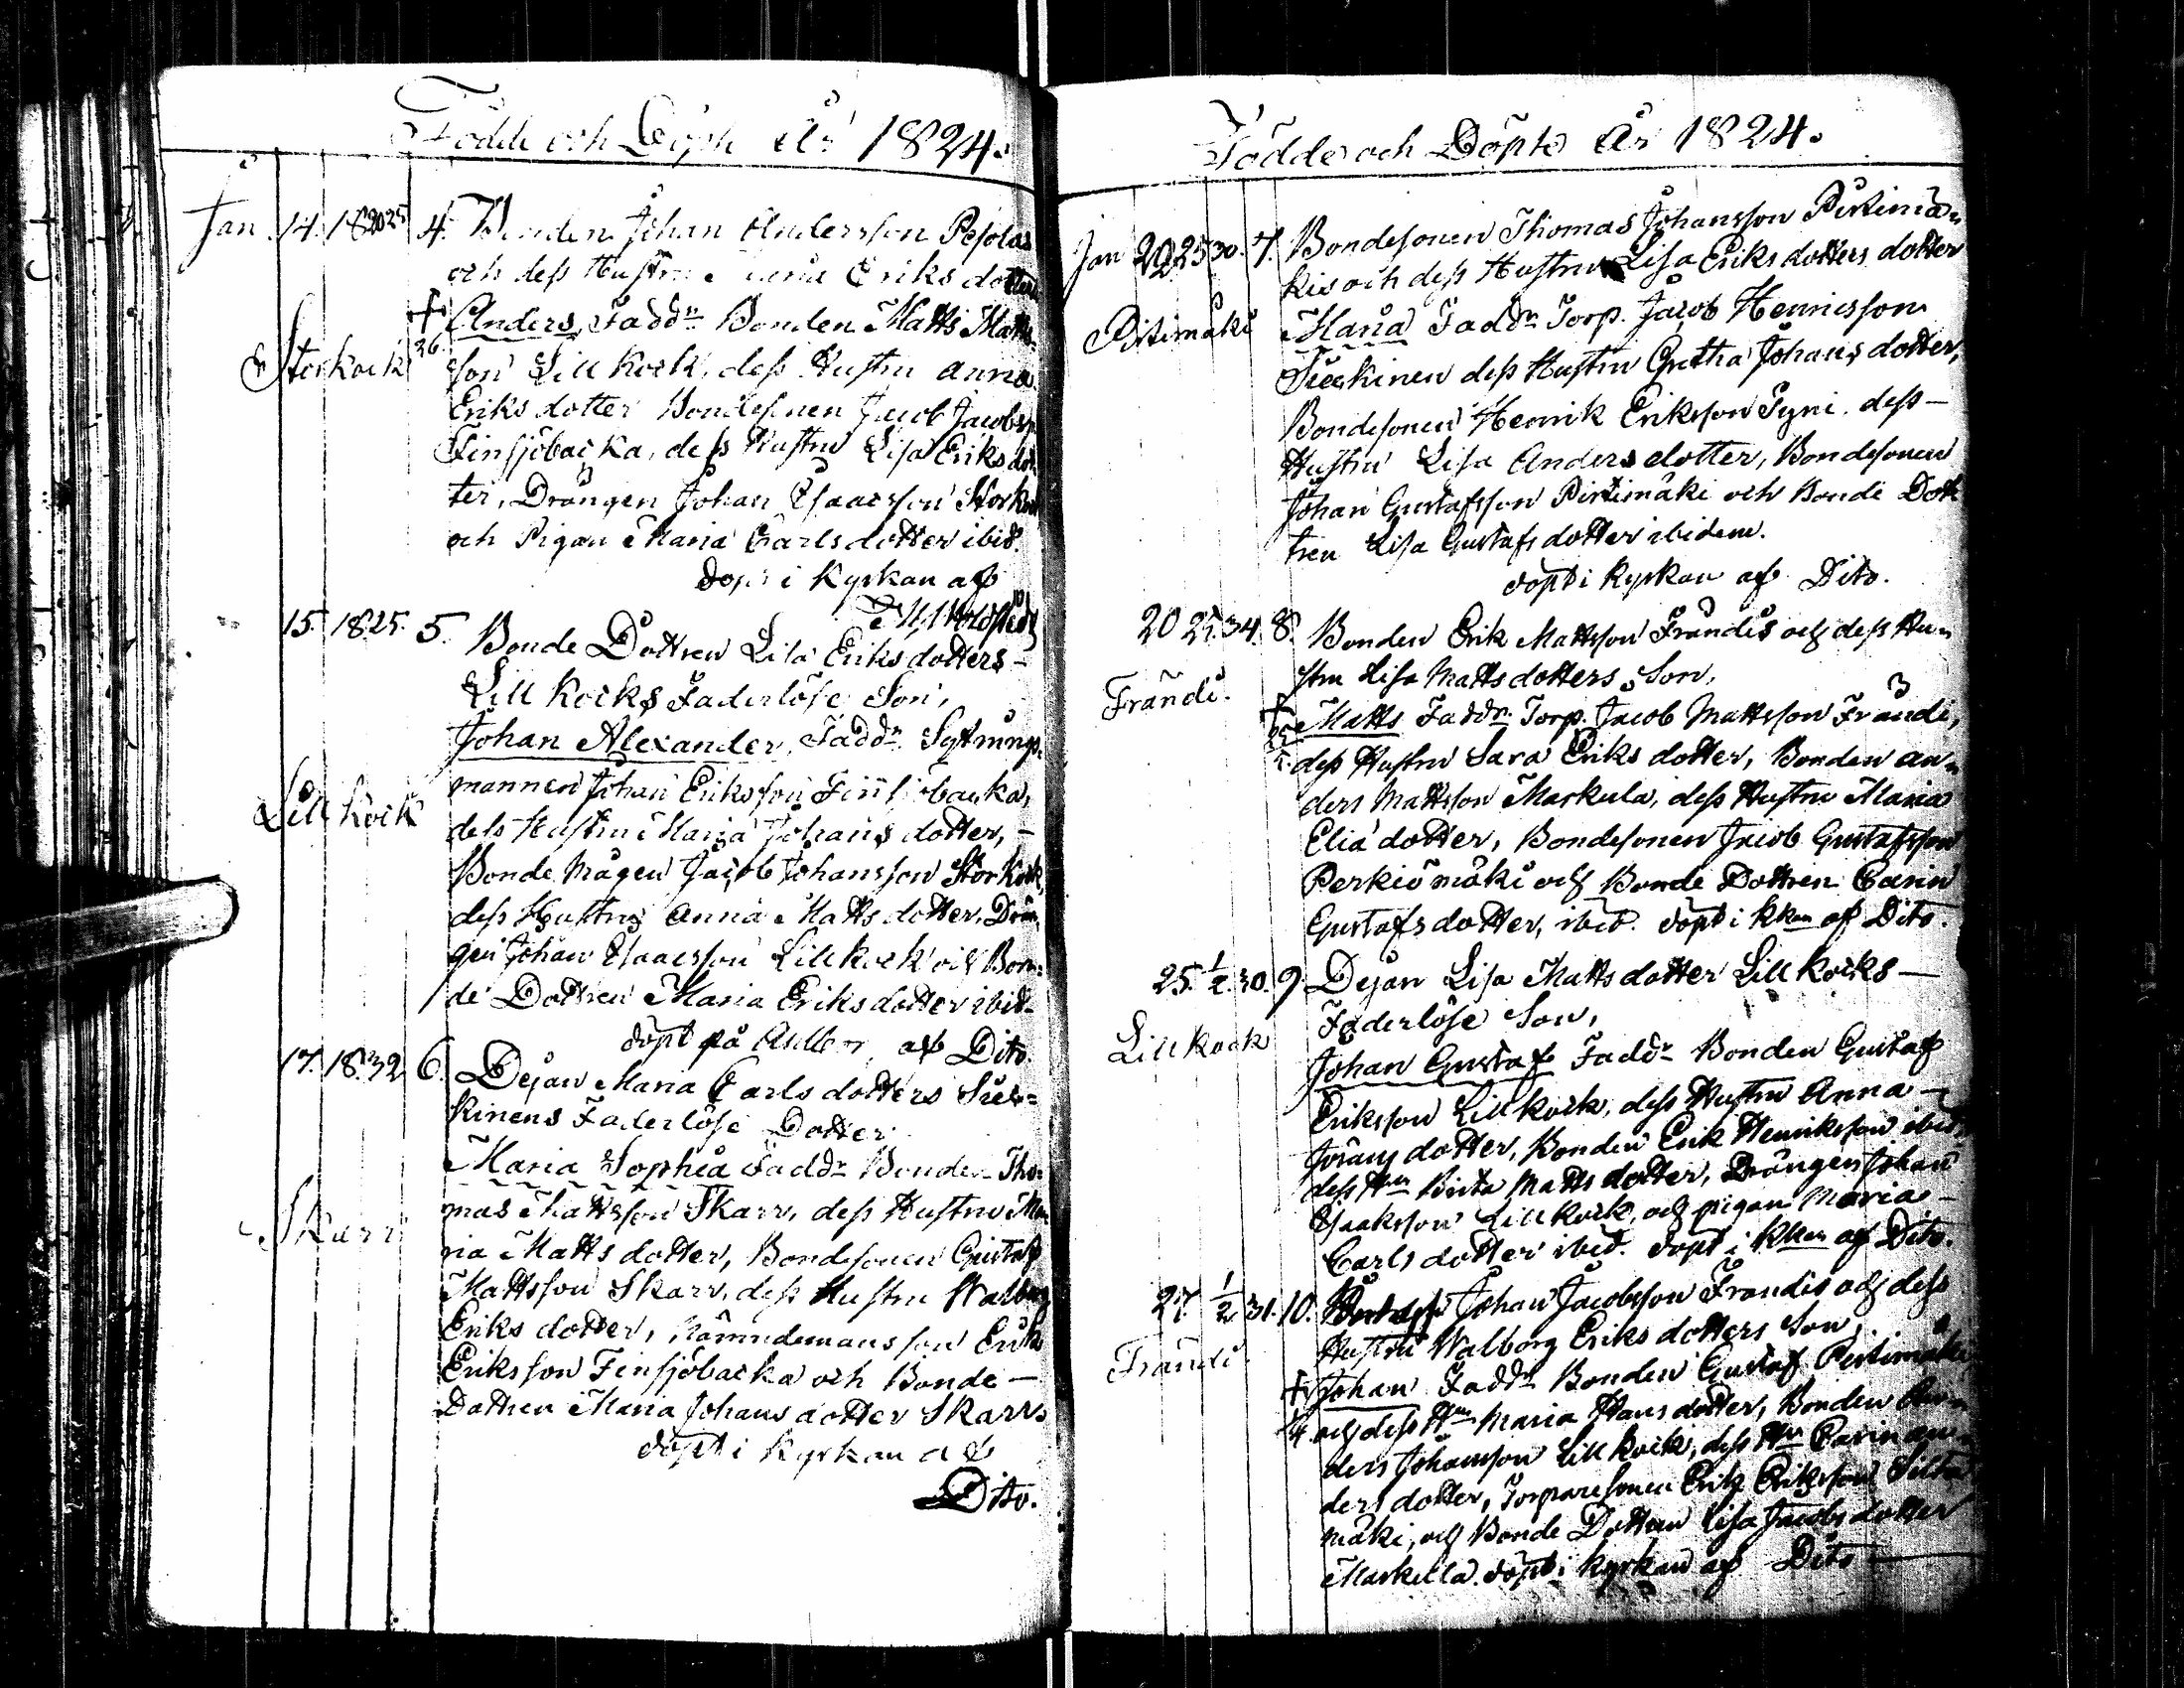 Födde och Döpte År 1824.
Jan. 14. 18 2025 4. Bonden Johan Andersson Pesolas
och dess Hustru Eriks dotters
+ Anders, Fadd:r Bonden Matts Matts-
Storkock 26. son Lillkock, dess Hustru Anna
Eriks dotter Bondesonen Jacob Jacobsn
Finsjöbacka, dess Hustru Lisa Eriks dot-
ter, Drängen Johan Isaacsson Storkock
och Pigan Maria Carls dotter ibid.
döpt i Kyrkan af
15. 18.25. 5. Bonde Dottren Lisa Eriks dotters-
Lill Kocks Faderlöse Son,
Johan Alexander, Fadd:r Sytnings-
mannen Johan Eriksson Finsjöbacka,
Lillkock dess Hustru Maria Johans dotter, -
Bonde Mågen Jacob Johansson Storkock,
dess Hustru Anna Matts dotter, Drän-
gen Johan Isaacsson Lillkock och Bon-
de Dottren Maria Eriks dotter ibid-
döpt på af Dito.
17. 18.32 6. Dejan Maria Carls dotters Siee-
kinens Faderlöse Dotter
Maria Sophia Fadd:r Bonden Tho-
mas Mattsson Skarr, dess Hustru Ma-
Skarr ria Matts dotter, Bondesonen Gustaf
Mattsson Skarr, dess Hustru Walborg
Eriks dotter, Nämndemans son Erik
Eriksson Finsjöbacka och Bonde -
Dottren Maria Johans dotter Skarr.
döpt i Kyrkan af
Dito.
Födde och Döpte År 1824.
Jan 20 25 30. 7. Bondesonen Thomas Johansson Pirtimä-
kis och dess Hustru Lisa Eriks dotters dotter
Pirtimäki Maria Fadd:r Torp. Jacob Henricsson
Sieekinen dess Hustru Gretha Johans dotter,
Bondesonen Henrik Eriksson Syni dess -
Hustru Lisa Anders dotter, Bondesonen
Johan Gustafsson Pirtimäki och Bonde Dott
tren Lisa Gustafs dotter ibidem.
döpt i Kyrkan af Dito.
20 25. 34. 8. Bonden Erik Mattsson Frändis och dess Hu-
stru Lisa Matts dotters Son,
Frändi. + Matts Fadd:r Torp. Jacob Mattsson Frändi,
dess Hustru Sara Eriks dotter, Bonden An-
ders Mattsson Markula, dess Hustru Maria
Eliä dotter, Bondesonen Jacob Gustafsson
Perkiömäki och Bonde Dottren Carin
Gustafs dotter, ibid. döpt i Kkan af Dito.
25. 1/2. 30. 9. Dejan Lisa Matts dotter Lillkocks -
Faderlöse Son,
Lillkock Johan Gustaf Fadd:r Bonden Gustaf
Eriksson Lillkock, dess Hustru Anna -
Jörans dotter, Bonden Erik Henriksson ibid.
dess Hu Brita Matts dotter, Drängen Johan
Isaaksson Lillkock, och pigan Maria -
Carls dotter ibid. döpt i Kkan af Dito.
27. 1/2 31. 10. Johan Jacobsson Frändis och dess
Hustru Walborg Eriks dotters Son,
Frändi. + Johan Fadd:r Bonden Gustaf Pirtimäki
och dess Hu Maria Hans dotter, Bonden An-
ders Johansson Lillkock, dess Hu Carin An-
ders dotter, Torparesonen Erik Eriksson Silta
mäki, och Bonde Dottren Lisa Jacobs dotter
Markula. döpt i Kyrkan af Dito